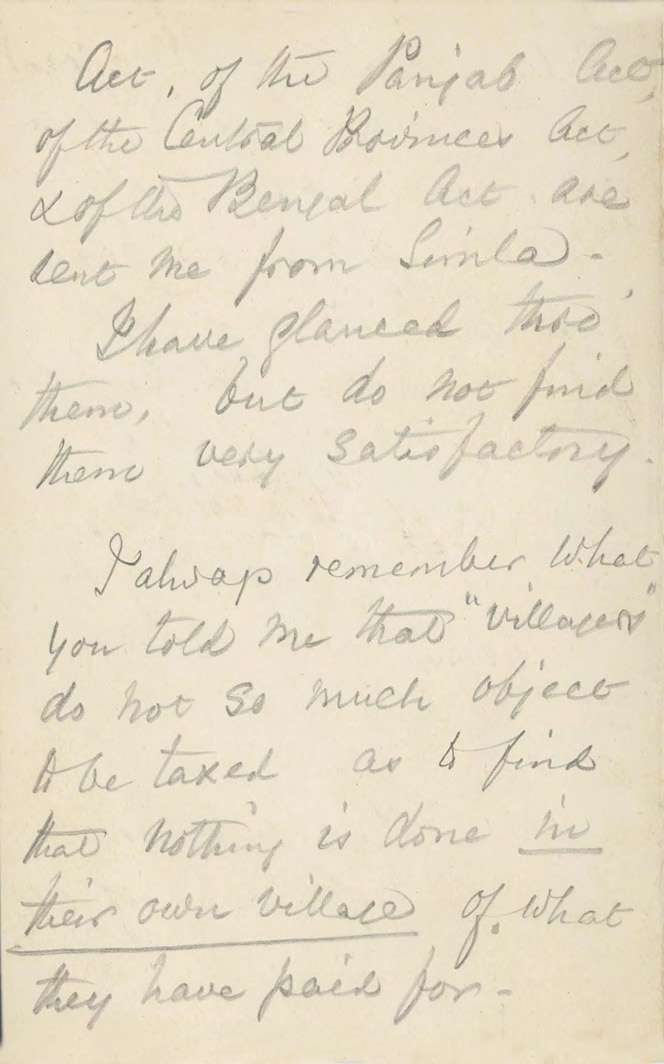 Act, of the Panjab Act,
of the Central Provinces Act,
& of the Bengal Act are
sent me from Simla -
I have glanced thro'
them, but do not find
them very satisfactory.
I always remember what
you told me that "villagers"
do not so much object
to be taxed as to find
that nothing is done in
their own village of what
they have paid for -